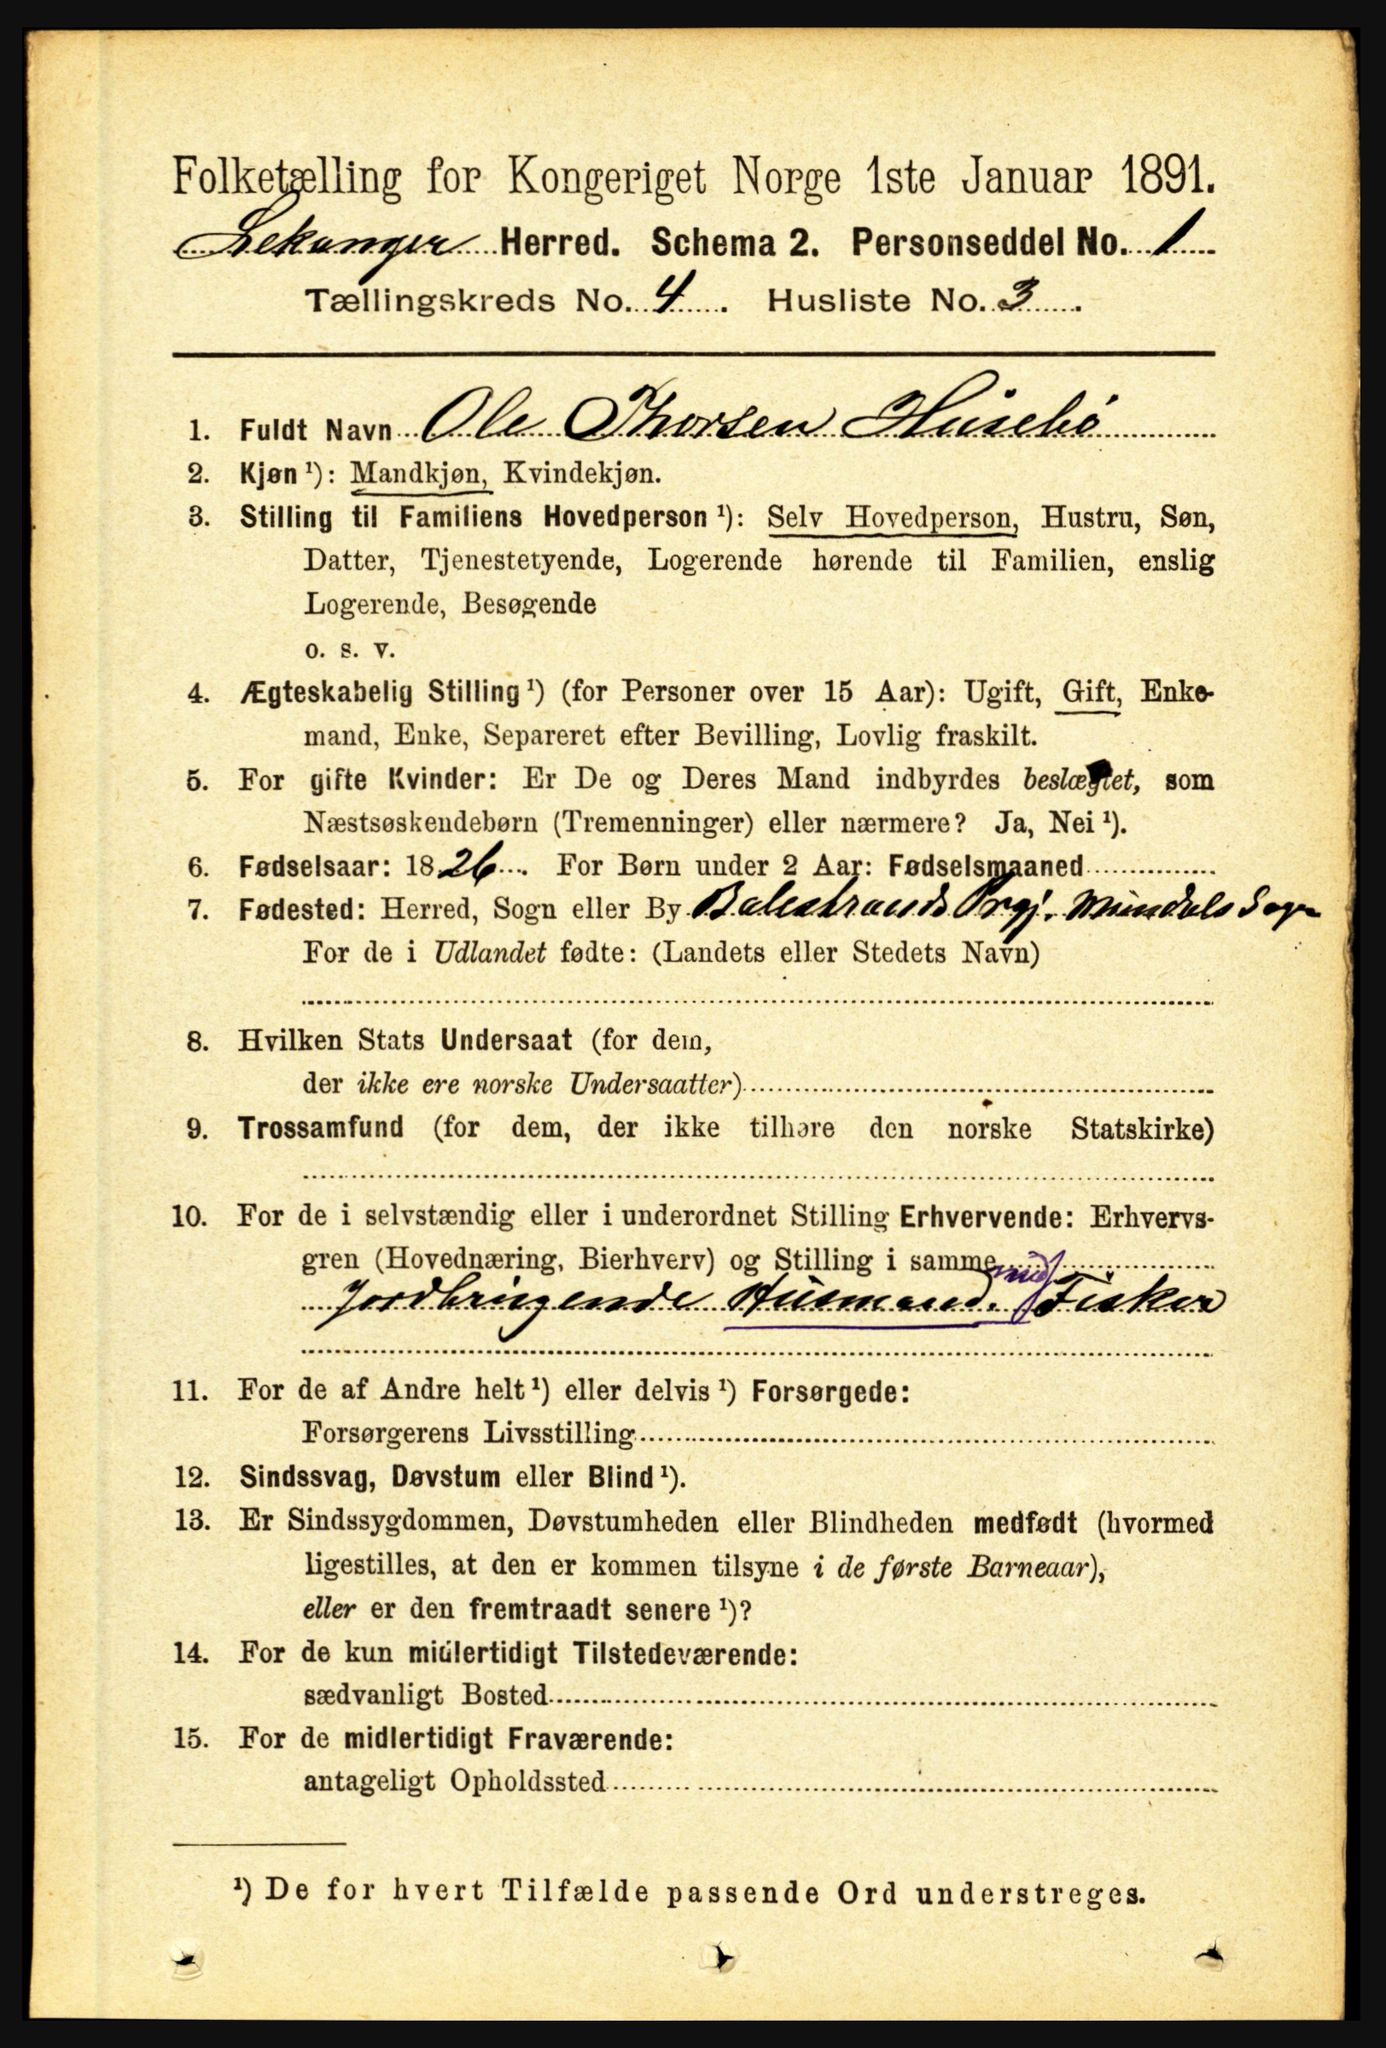 Folketælling for Kongeriget Norge 1ste Januar 1891.
Lekanger Herred. Schema 2. Personseddel No. 1
Tællingskreds No. 4. Husliste No. 3.
1. Fuldt Navn Ole Thorsen Husebø
2. Kjøn ¹): Mandkjøn, Kvindekjøn.
3. Stilling til Familiens Hovedperson ¹): Selv Hovedperson, Hustru, Søn,
Datter, Tjenestetyende, Logerende hørende til Familien, enslig
Logerende, Besøgende
o. s. v.
4. Ægteskabelig Stilling ¹) (for Personer over 15 Aar): Ugift, Gift, Enke-
mand, Enke, Separeret efter Bevilling, Lovlig fraskilt.
5. For gifte Kvinder: Er De og Deres Mand indbyrdes beslægtet, som
Næstsøskendebørn (Tremenninger) eller nærmere? Ja, Nei ¹).
6. Fødselsaar: 1826. For Børn under 2 Aar: Fødselsmaaned
7. Fødested: Herred, Sogn eller By Balestrands Prgj. Mundals Sogn
For de i Udlandet fødte: (Landets eller Stedets Navn)
8. Hvilken Stats Undersaat (for dem,
der ikke ere norske Undersaatter)
9. Trossamfund (for dem, der ikke tilhøre den norske Statskirke)
10. For de i selvstændig eller i underordnet Stilling Erhvervende: Erhvervs-
gren (Hovednæring, Bierhverv) og Stilling i samme
Jordbrugende Husmand. Fisker
11. For de af Andre helt ¹) eller delvis ¹) Forsørgede:
Forsørgerens Livsstilling
12. Sindssvag, Døvstum eller Blind ¹).
13. Er Sindssygdommen, Døvstumheden eller Blindheden medfødt (hvormed
ligestilles, at den er kommen tilsyne i de første Barneaar),
eller er den fremtraadt senere ¹)?
14. For de kun midlertidigt Tilstedeværende:
sædvanligt Bosted
15. For de midlertidigt Fraværende:
antageligt Opholdssted
¹) De for hvert Tilfælde passende Ord understreges.